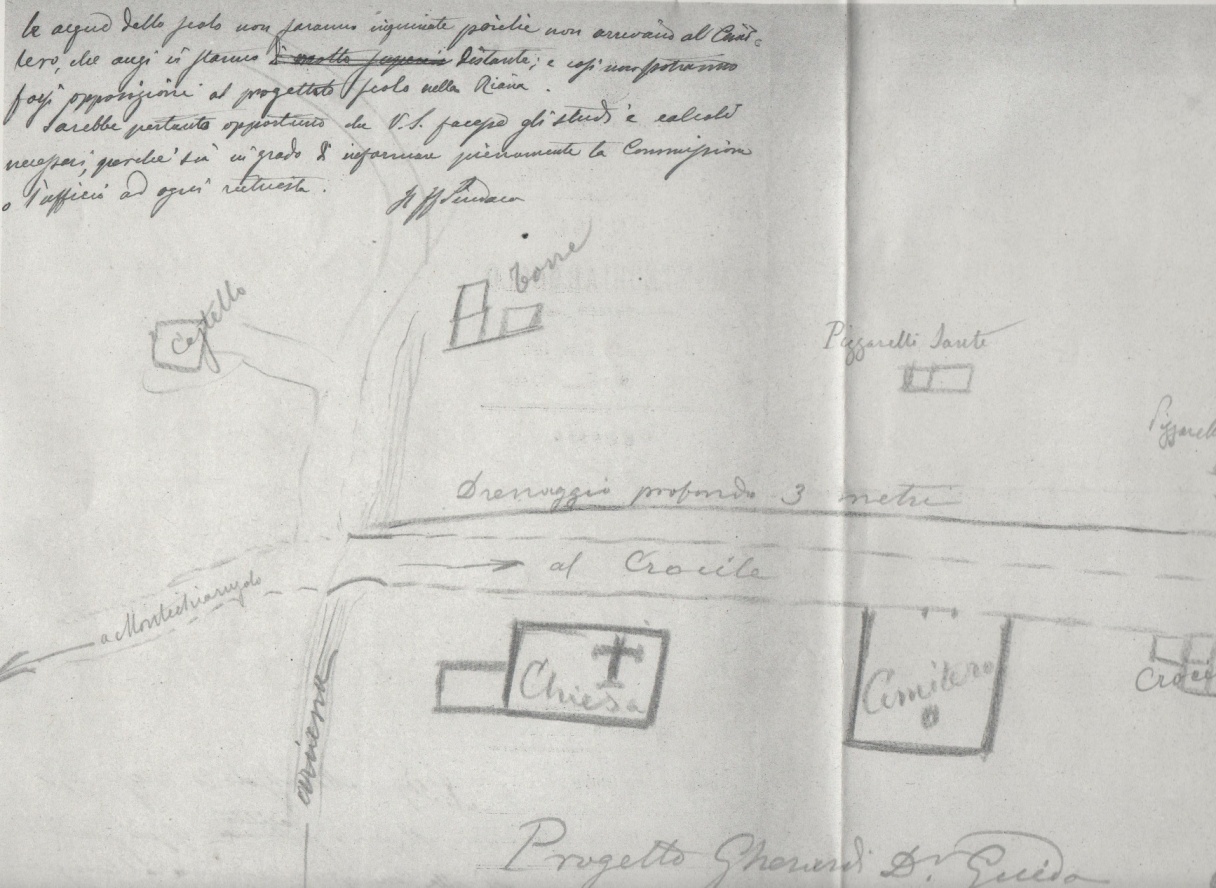 le acque dello scolo non saranno inquinate poichè non arrivano al Cimi=
tero, che anzi vi stanno distante; e così non potranno
farsi opposizioni al progettato scolo nella Riana.
Sarebbe pertanto opportuno che V.S. facesse gli studi e calcoli
necessari, perchè sia in grado di informare pienamente la Commissione
o l'ufficio ad ogni richiesta.
Il ff Sindaco
Torre
Castello
Pizzarelli Sante
Drenaggio profondo 3 metri
al Crocile
a Montechiarugolo
Chiesa
Cimitero
Progetto Gherardi Dr Guido